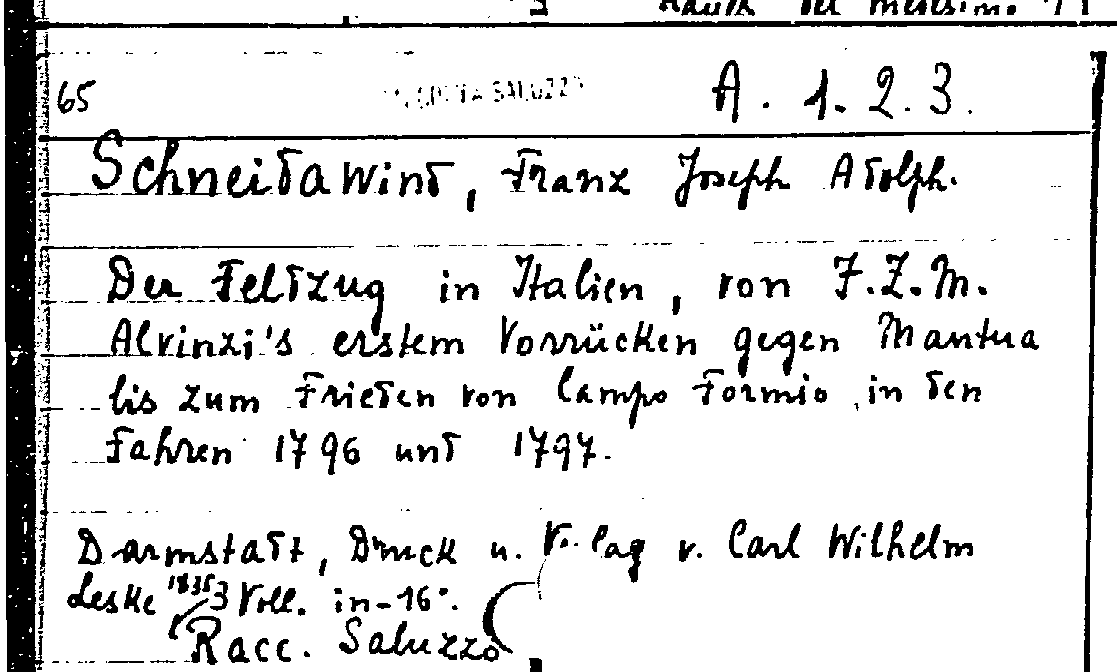 65 A. 1. 2. 3.
Schneidawind, Franz Joseph Adolph.
Der Feldzug in Italien, von F.Z.M.
Alvinzi's erstem Vorrücken gegen Mantua
bis zum Frieden von Campo Formio in den
Jahren 1796 und 1797.
Darmstadt, Druck u. Verlag v. Carl Wilhelm
Leske 1835 3 Voll. in-16°.
Racc. Saluzzo